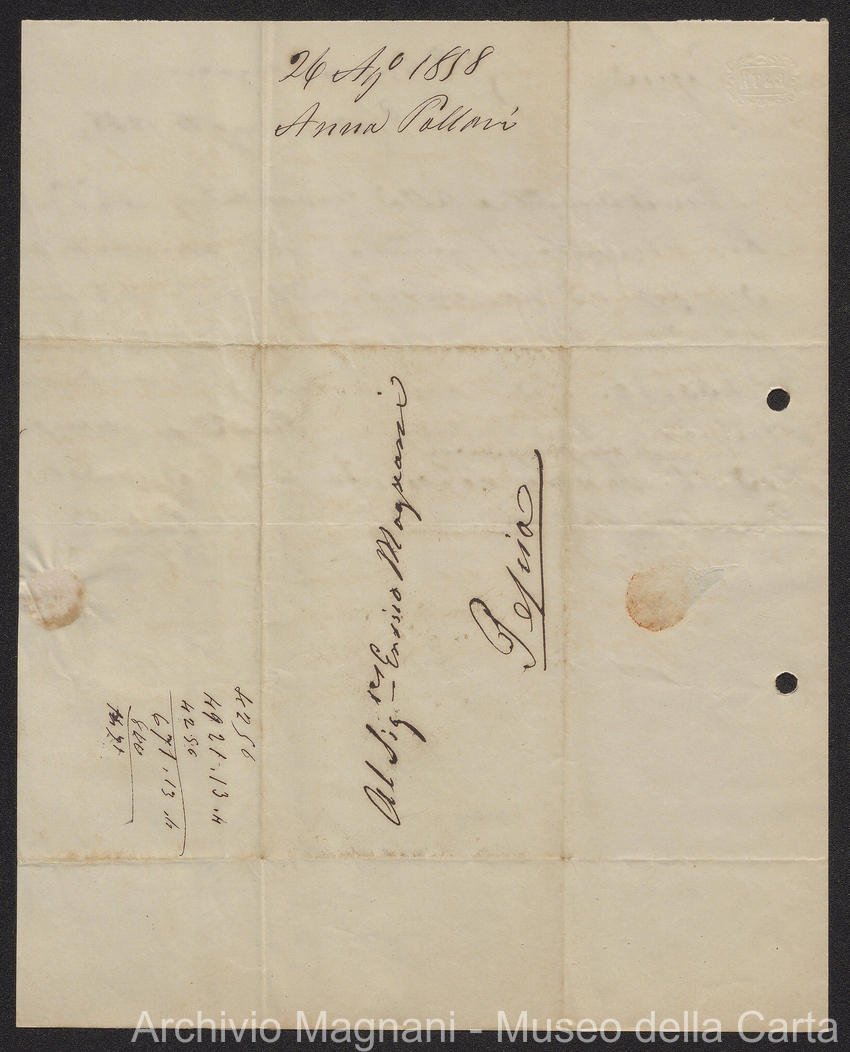 26 Ago 1858
Anna Pollani
Al Sigre Enrico Magnani
Pescia
4256
4921.13.4
4256
671.13.4
BATH
Archivio Magnani - Museo della Carta